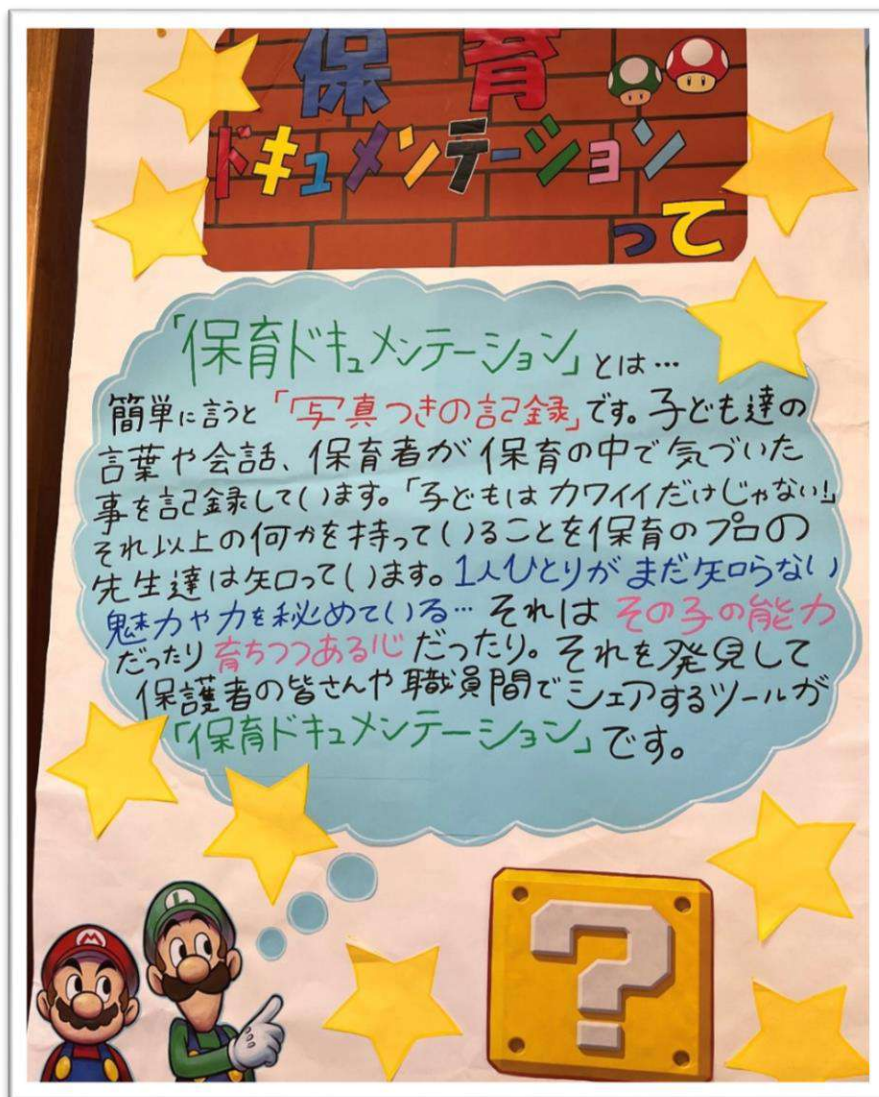 保育
ドキュメンテーション
って
「保育ドキュメンテーション」とは…
簡単に言うと「写真つきの記録」です。子ども達の
言葉や会話、保育者が保育の中で気づいた
事を記録しています。「子どもはカワイイだけじゃない!」
それ以上の何かを持っていることを保育のプロの
先生達は知っています。1人ひとりがまだ知らない
魅力や力を秘めている…それはその子の能力
だったり育ちつつある心だったり。それを発見して
保護者の皆さんや職員間でシェアするツールが
「保育ドキュメンテーション」です。
M
L
?